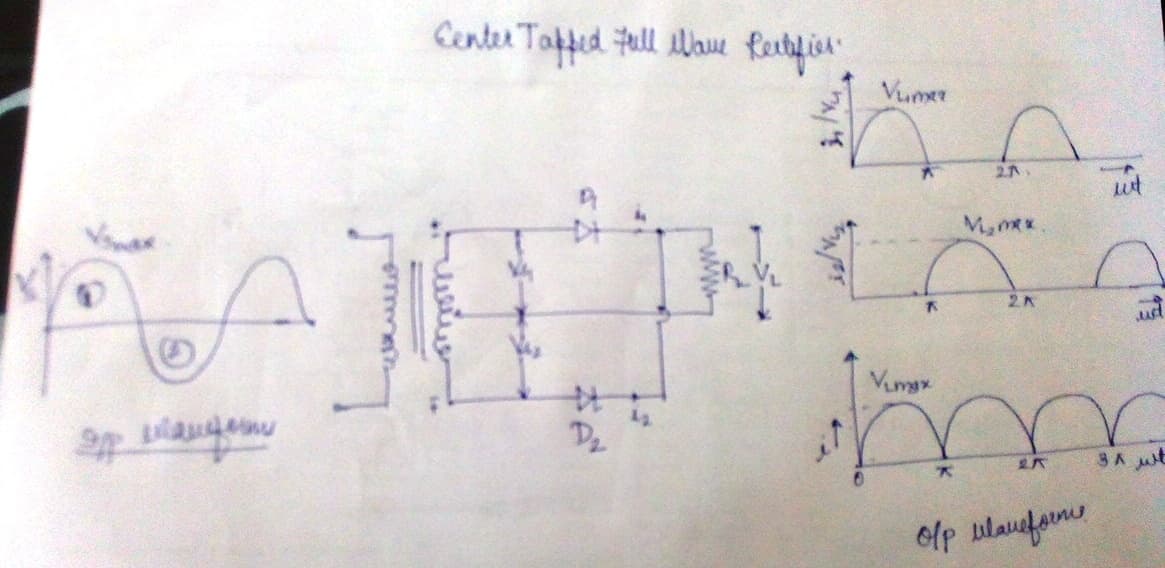 Center Tapped Full Wave Rectifier
Vsmax
Vs
1
2
I/p waveforms
D1
i1
RL
VL
D2
i2
i1/VL1
VL1max
π
2π
ωt
i2/VL2
VL2max
π
2π
ωt
i↑
VLmax
0
π
2π
3π ωt
O/p waveforms